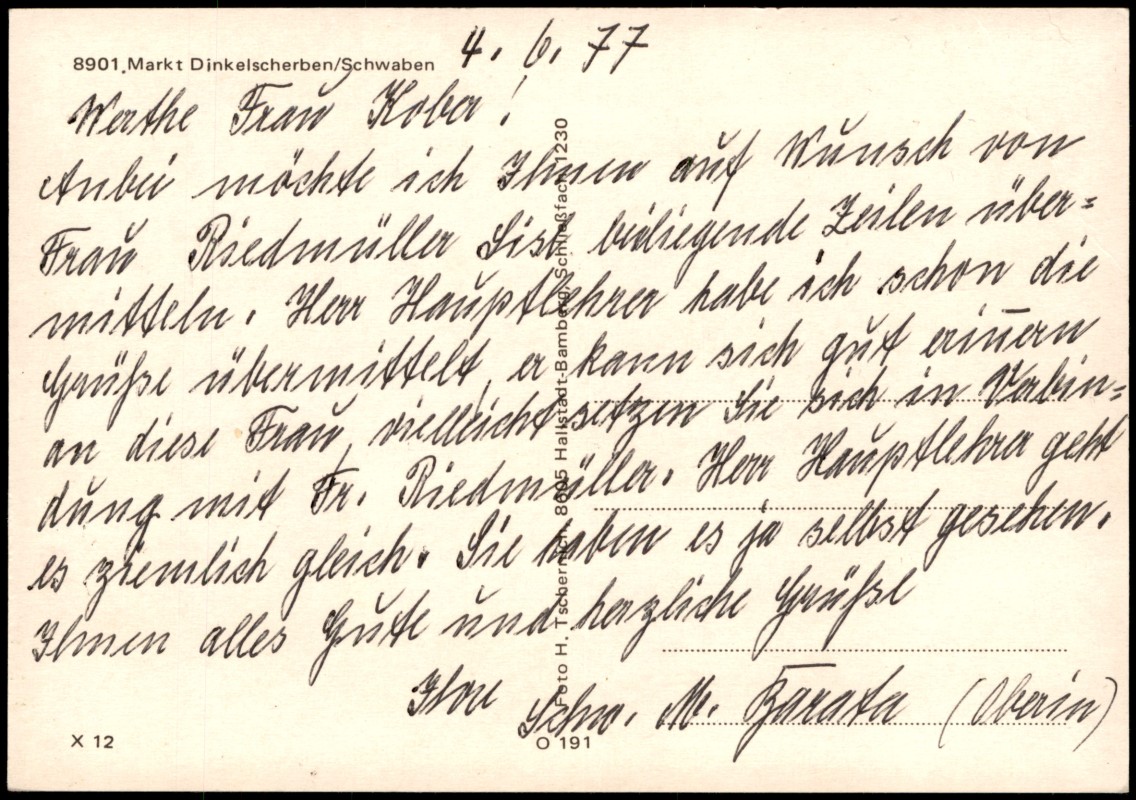 4. 6. 77
8901 Markt Dinkelscherben/Schwaben
Werthe Frau Kober!
Anbei möchte ich Ihnen auf Wunsch von
Frau Riedmüller beiliegende Zeilen über=
mitteln. Herr Hauptlehrer habe ich schon die
Grüße übermittelt, er kann sich gut erin̄ern
an diese Frau, vielleicht setzen Sie sich in Verbin=
dung mit Fr. Riedmüller. Herr Hauptlehrer geht
es ziemlich gleich. Sie haben es ja selbst gesehen.
Ihnen alles Gute und herzliche Grüße
Ihre
Schw. M. (Oberin)
Foto H. Tschernich, 8605 Hallstadt-Bamberg, Schließfach 1230
X 12
O 191